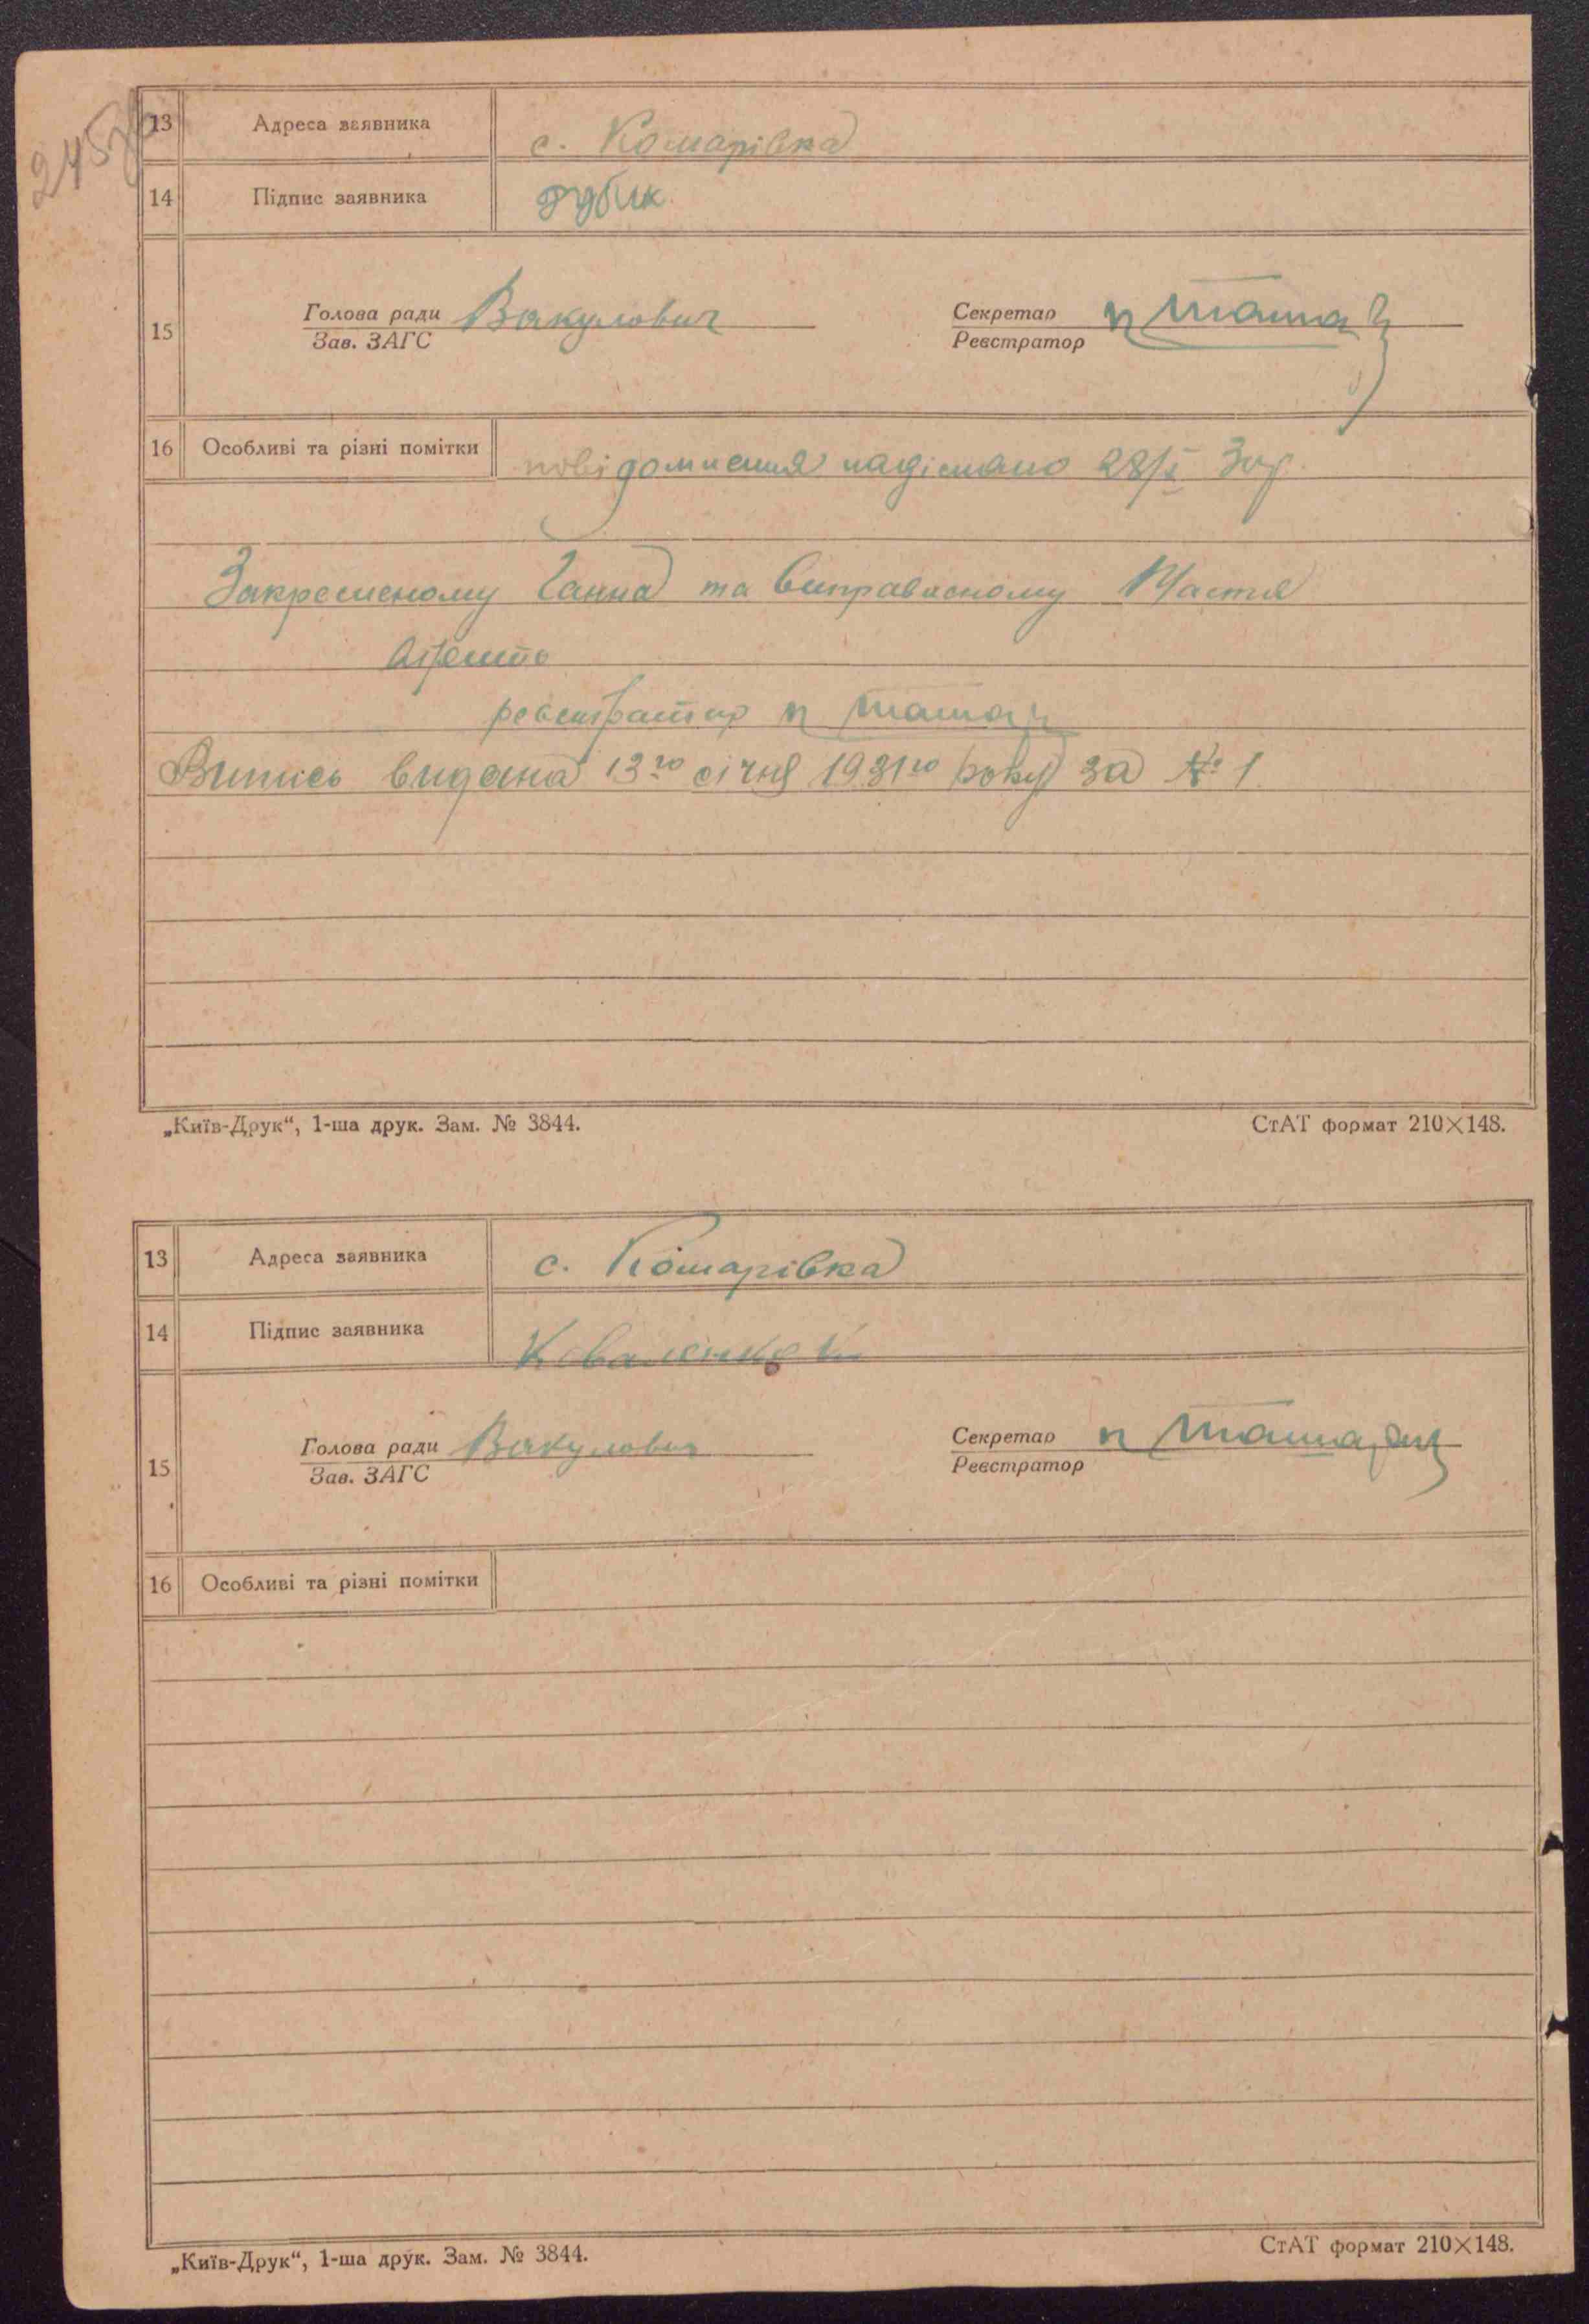 245
13 Адреса заявника с. Комарівка
14 Підпис заявника Рубик
15 Голова ради Вакулович Секретар
Зав. ЗАГС Реєстратор
16 Особливі та різні помітки повідомлення надіслано 28/I 30р.
Закресленому Ганна та виправленому Настя
реєстратор
Випись видана 13го січня 1931го року за № 1
„Київ-Друк“, 1-ша друк. Зам. № 3844. СтАТ формат 210×148.
13 Адреса заявника с. Комарівка
14 Підпис заявника Коваленко
15 Голова ради Вакулович Секретар
Зав. ЗАГС Реєстратор
16 Особливі та різні помітки
„Київ-Друк“, 1-ша друк. Зам. № 3844. СтАТ формат 210×148.